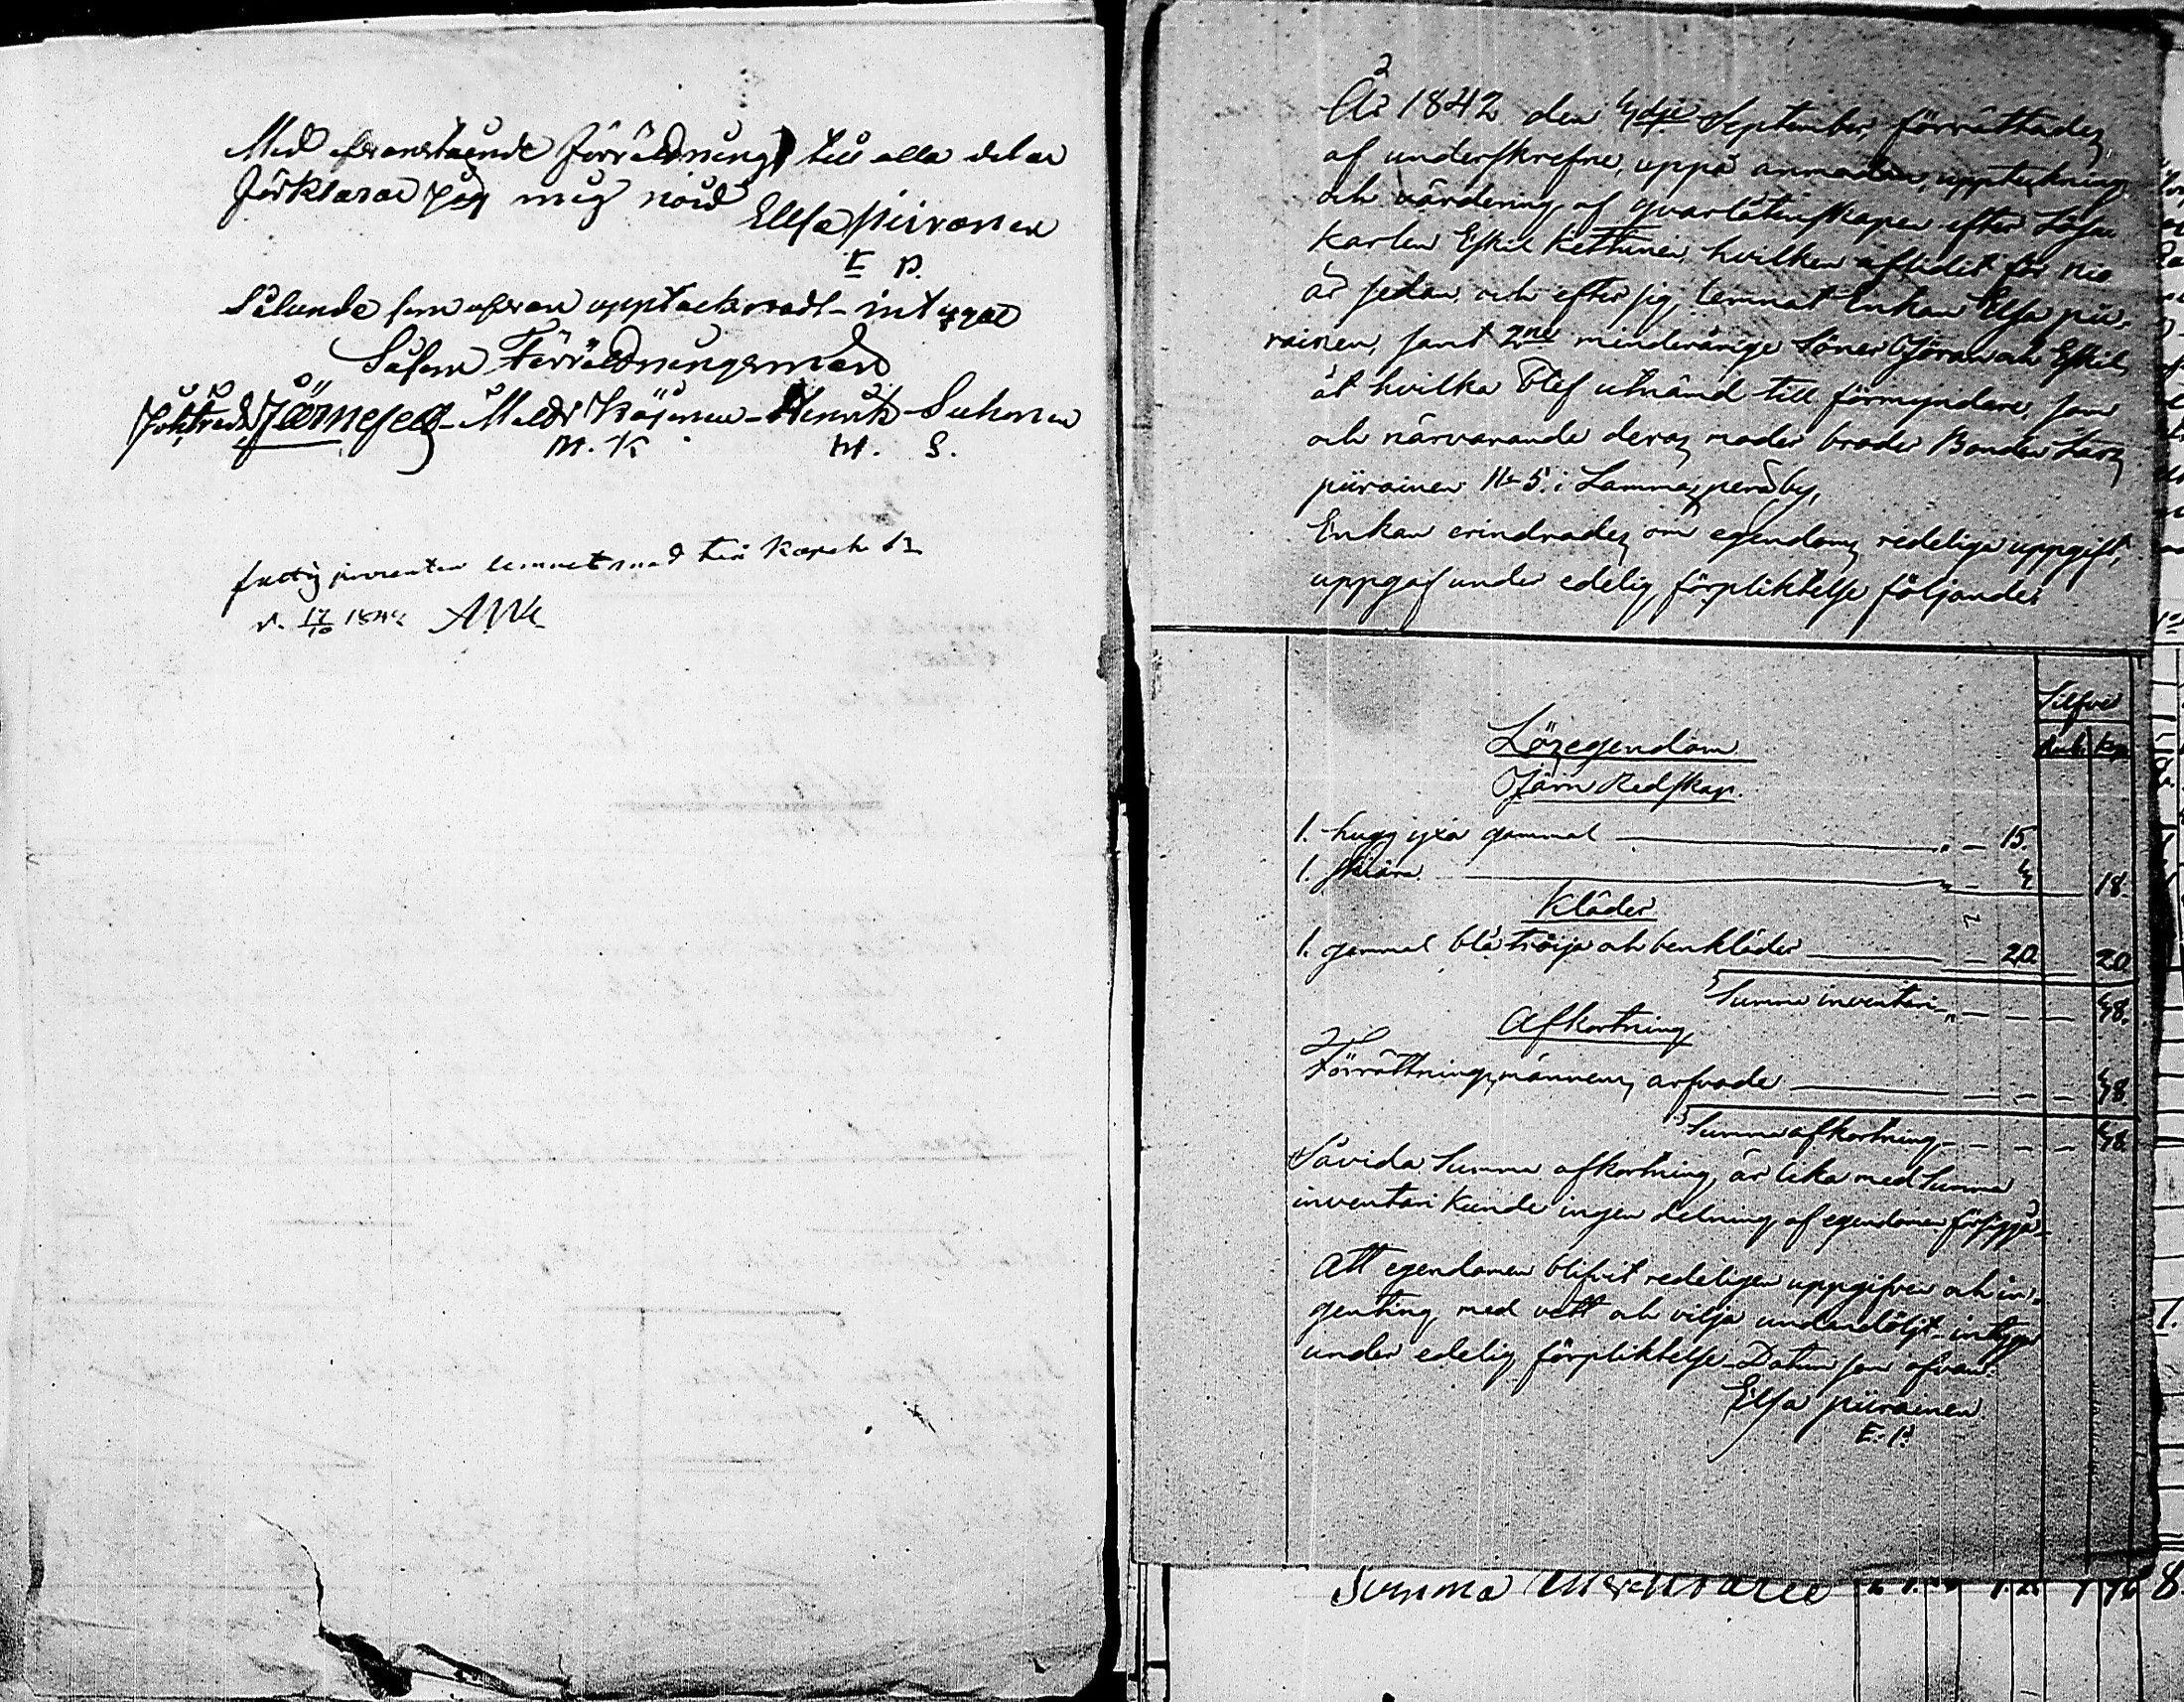 Med ofvanstående förrättning till alla delar
förklarar jag mig nöijd
Ellsa Piiranen
E P.
Sålunde som ofvan upptecknadt - intygar
Såsom Förrättningsmän
Järnefelt - Matts Käjonen - Henrik Suhonen
M. K H. S.
fattig procenten lemnat med tio kopek Sr
d. 17/10 1842
År 1842 den 4dje September, förrättades
af underskrefne, uppå anmodan, uppteckning
och värdering af qvarlåtenskapen efter Lösa
karlen Eskil Kettunen, hvilken aflidit för nio
år sedan, och efter sig lemnat Enkan Elsa pii-
rainen, samt 2ne minderårige Söner Göran och Eskil
åt hvilka blef utnämd till förmyndare, som
och närvarande deras moder broder Bonden Lars
piirainen No 5. i Lammasperä by,
Enkan erindrades om egendoms redeliga uppgift,
uppgaf under edelig förpliktelse följande:
Silfver
Rub. Kop.
Lösegendom
Järn Redskap.
1. hugg yxa gammal — " — 15.
1. skära — " — 4 — 18.
Kläder
1. gammal blå tröija och benkläder — — 20 — 20
Summa inventari — " — — — 48.
Afkortning
Förrättningsmännens arfvode — — — — 48.
Summa afkortning — — — — 48.
Såvida Summa afkortning är lika med Summa
inventari kunde ingen delning af egendomen försiggå
Att egendomen blifvit redeligen uppgifven och in-
genting med vett och vilja undandöljt - intygar
under edelig förpliktelse - Datum som ofvan.
Elsa piirainen
E. P.
Summa